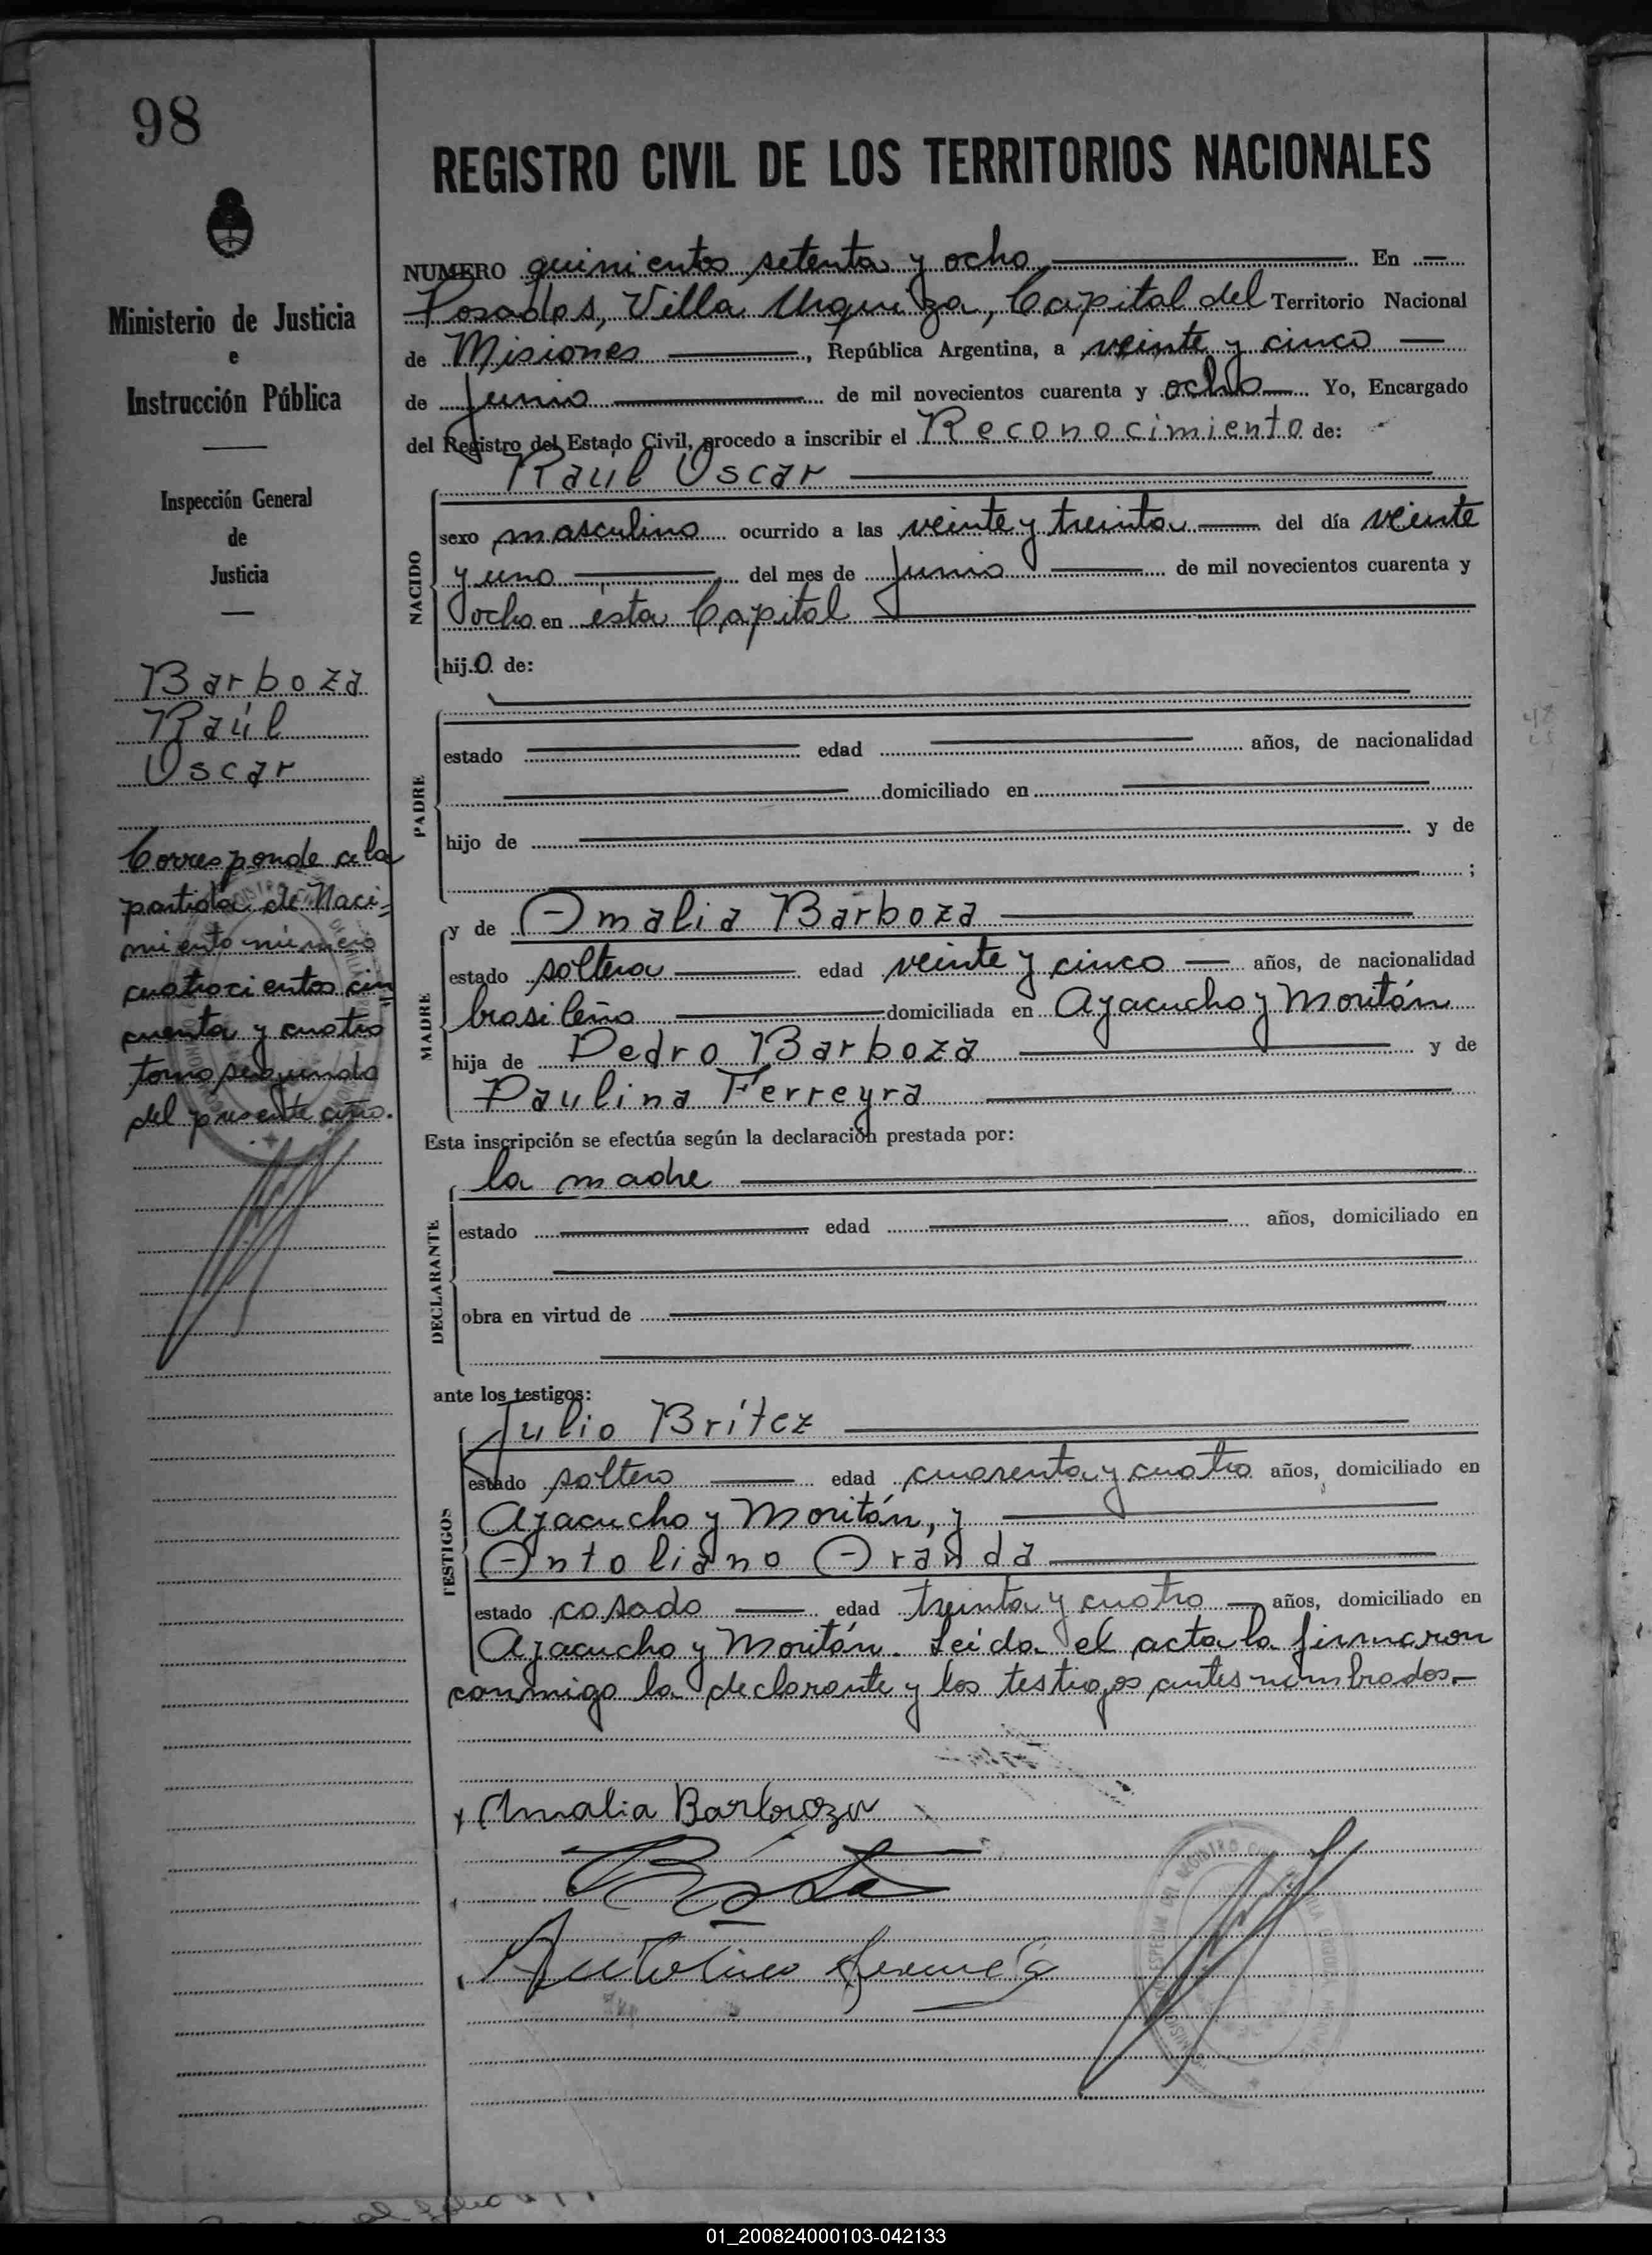 98
Ministerio de Justicia
e
Instrucción Pública
Inspección General
de
Justicia
Barboza
Raúl
Oscar
Corresponde a la
partida de Naci-
miento número
cuatrocientos cin
cuenta y cuatro
tomo segundo
del presente año.
REGISTRO CIVIL DE LOS TERRITORIOS NACIONALES
NUMERO quinientos setenta y ocho En
Posadas, Villa Urquiza, Capital del Territorio Nacional
de Misiones, República Argentina, a veinte y cinco
de junio de mil novecientos cuarenta y ocho Yo, Encargado
del Registro del Estado Civil, procedo a inscribir el Reconocimiento de:
Raúl Oscar
NACIDO
sexo masculino ocurrido a las veinte y treinta del día veinte
y uno del mes de junio de mil novecientos cuarenta y
ocho en esta Capital
hijo de:
PADRE
estado edad años, de nacionalidad
domiciliado en
hijo de y de
;
MADRE
y de Amalia Barboza
estado soltera edad veinte y cinco años, de nacionalidad
brasileña domiciliada en Ayacucho y Moritán
hija de Pedro Barboza y de
Paulina Ferreyra
Esta inscripción se efectúa según la declaración prestada por:
DECLARANTE
la madre
estado edad años, domiciliado en
obra en virtud de
ante los testigos:
TESTIGOS
Julio Brítez
estado soltero edad cuarenta y cuatro años, domiciliado en
Ayacucho y Moritán, y
Antoliano Aranda
estado casado edad treinta y cuatro años, domiciliado en
Ayacucho y Moritán. Leída el acta la firmaron
conmigo la declarante y los testigos antes nombrados.-
Amalia Barboza
01_200824000103-042133